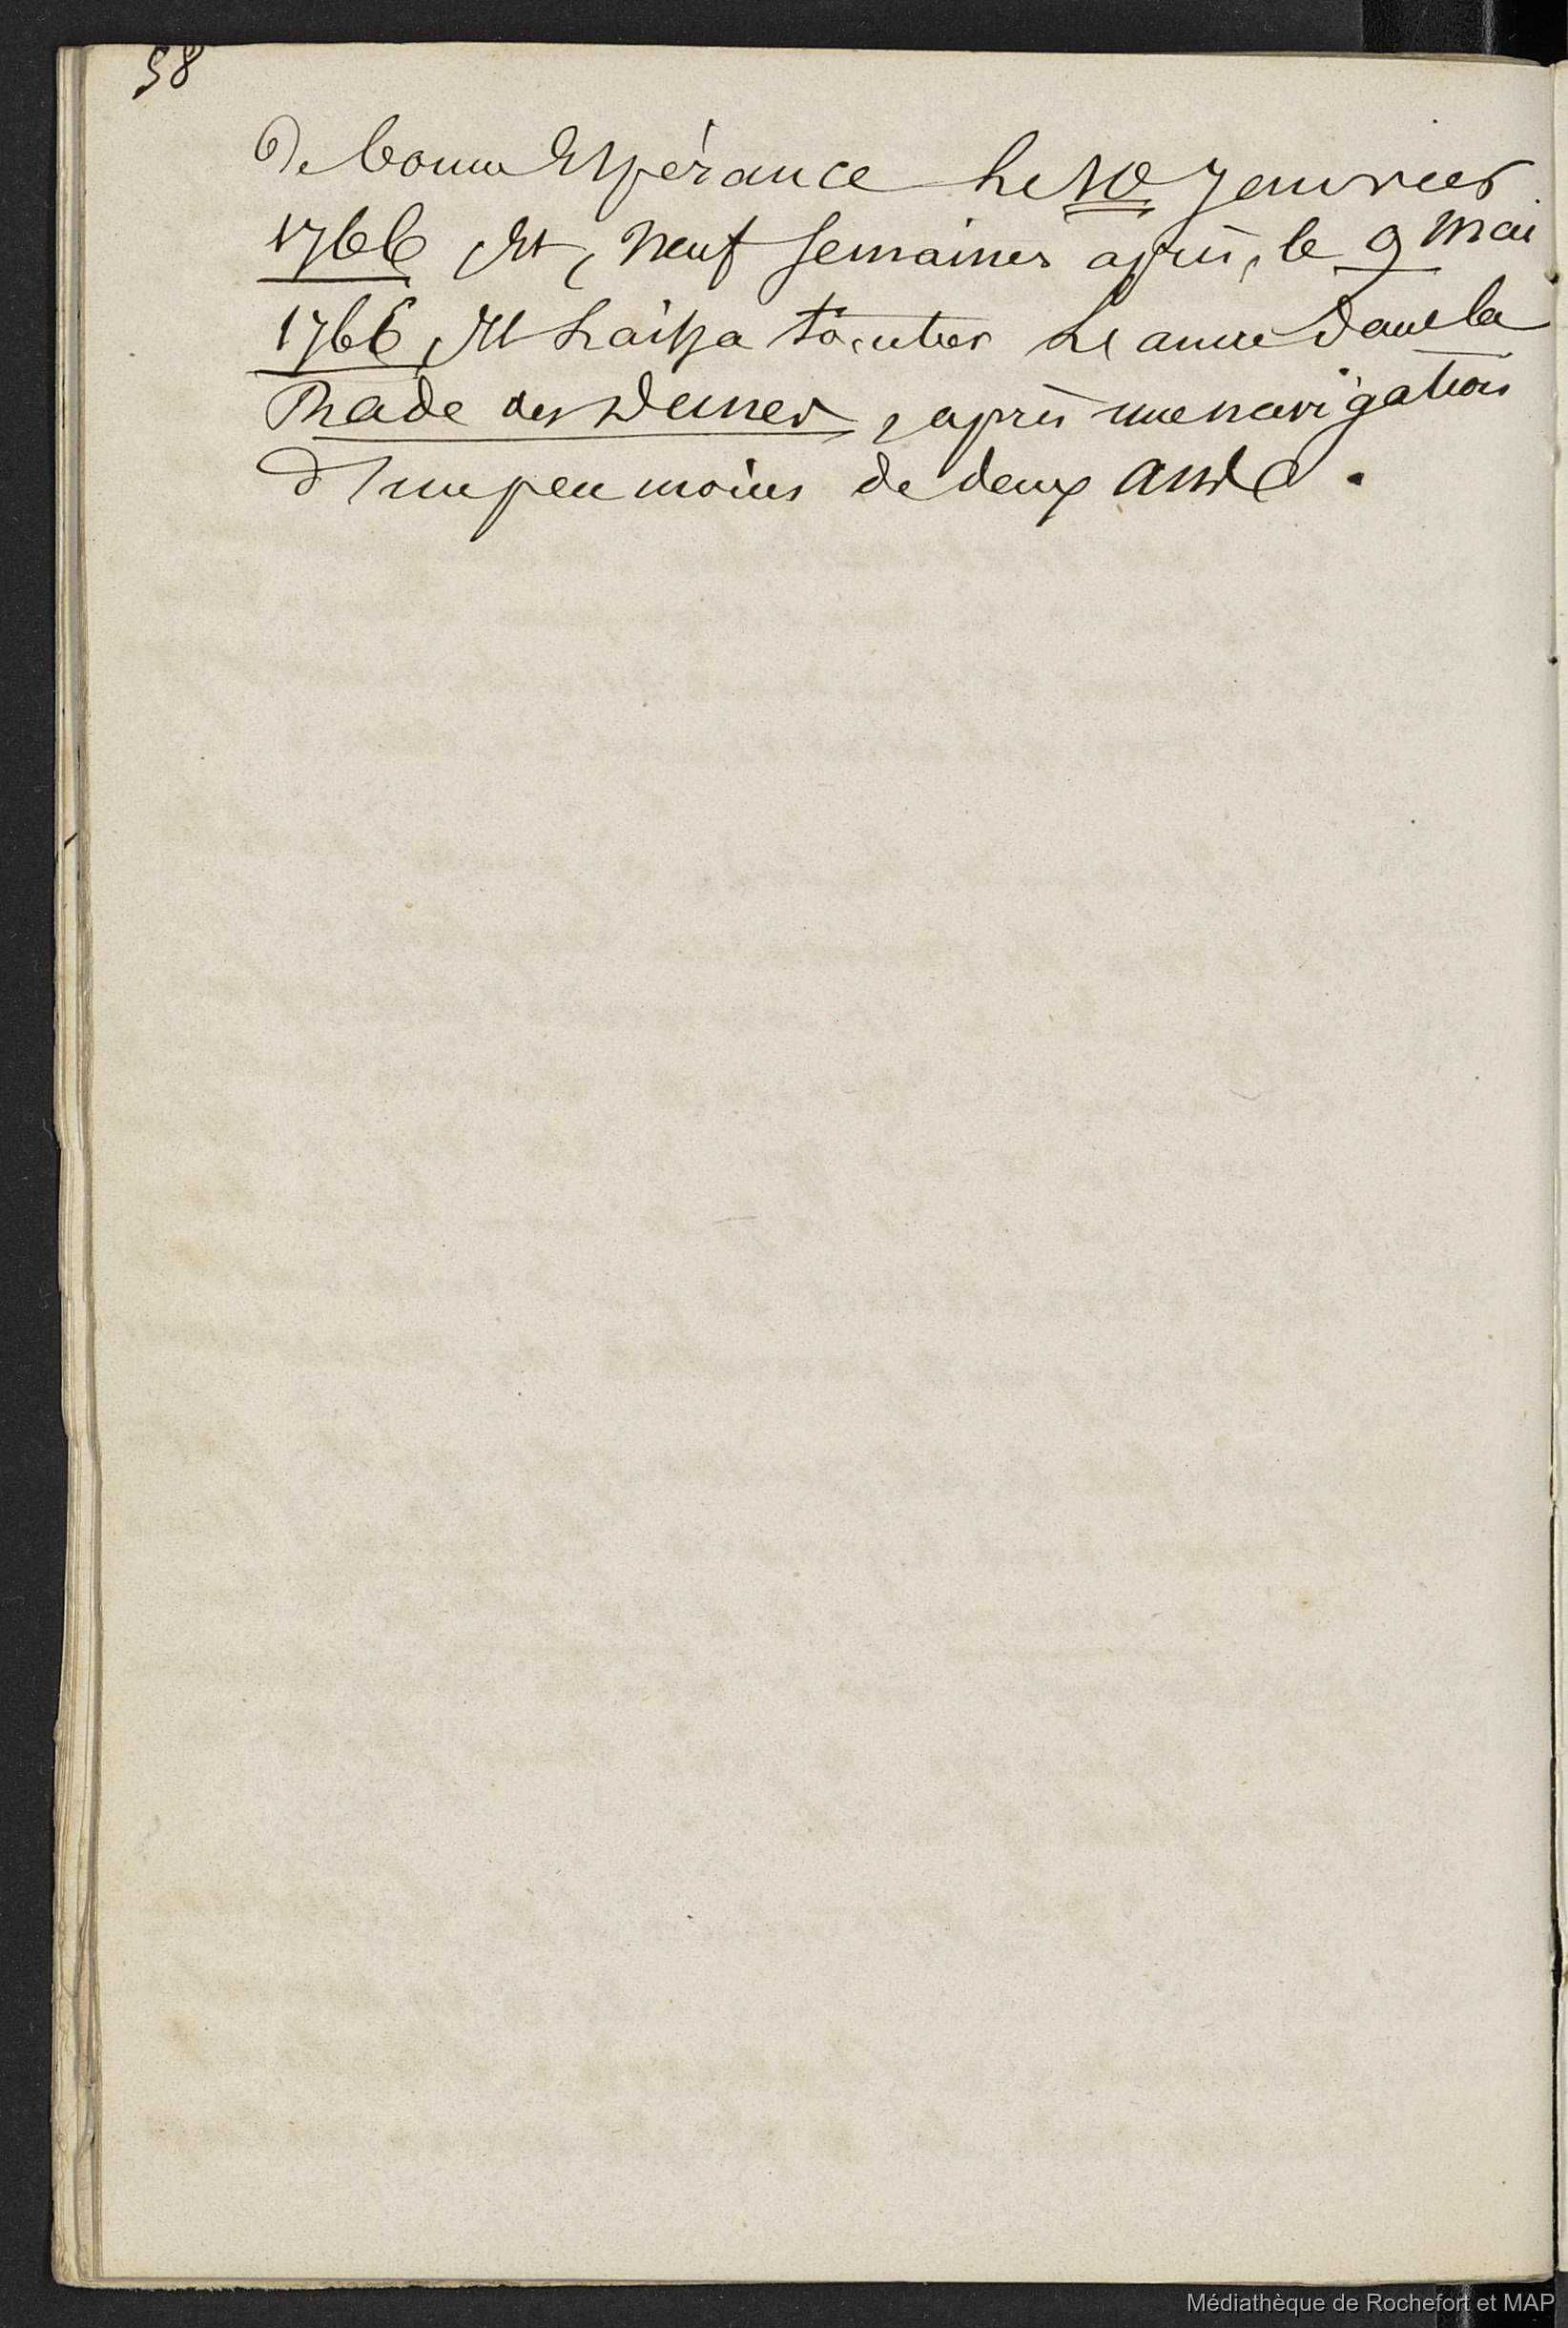 58
De bonne Espérance Le 10 Janvier
1766 Et, Neuf Semaines après, le 9 Mai
1766, Il Laissa tomber L'ancre Dans la
Rade des Dunes, après une navigation
d'un peu moins de deux ans.
Médiathèque de Rochefort et MAP